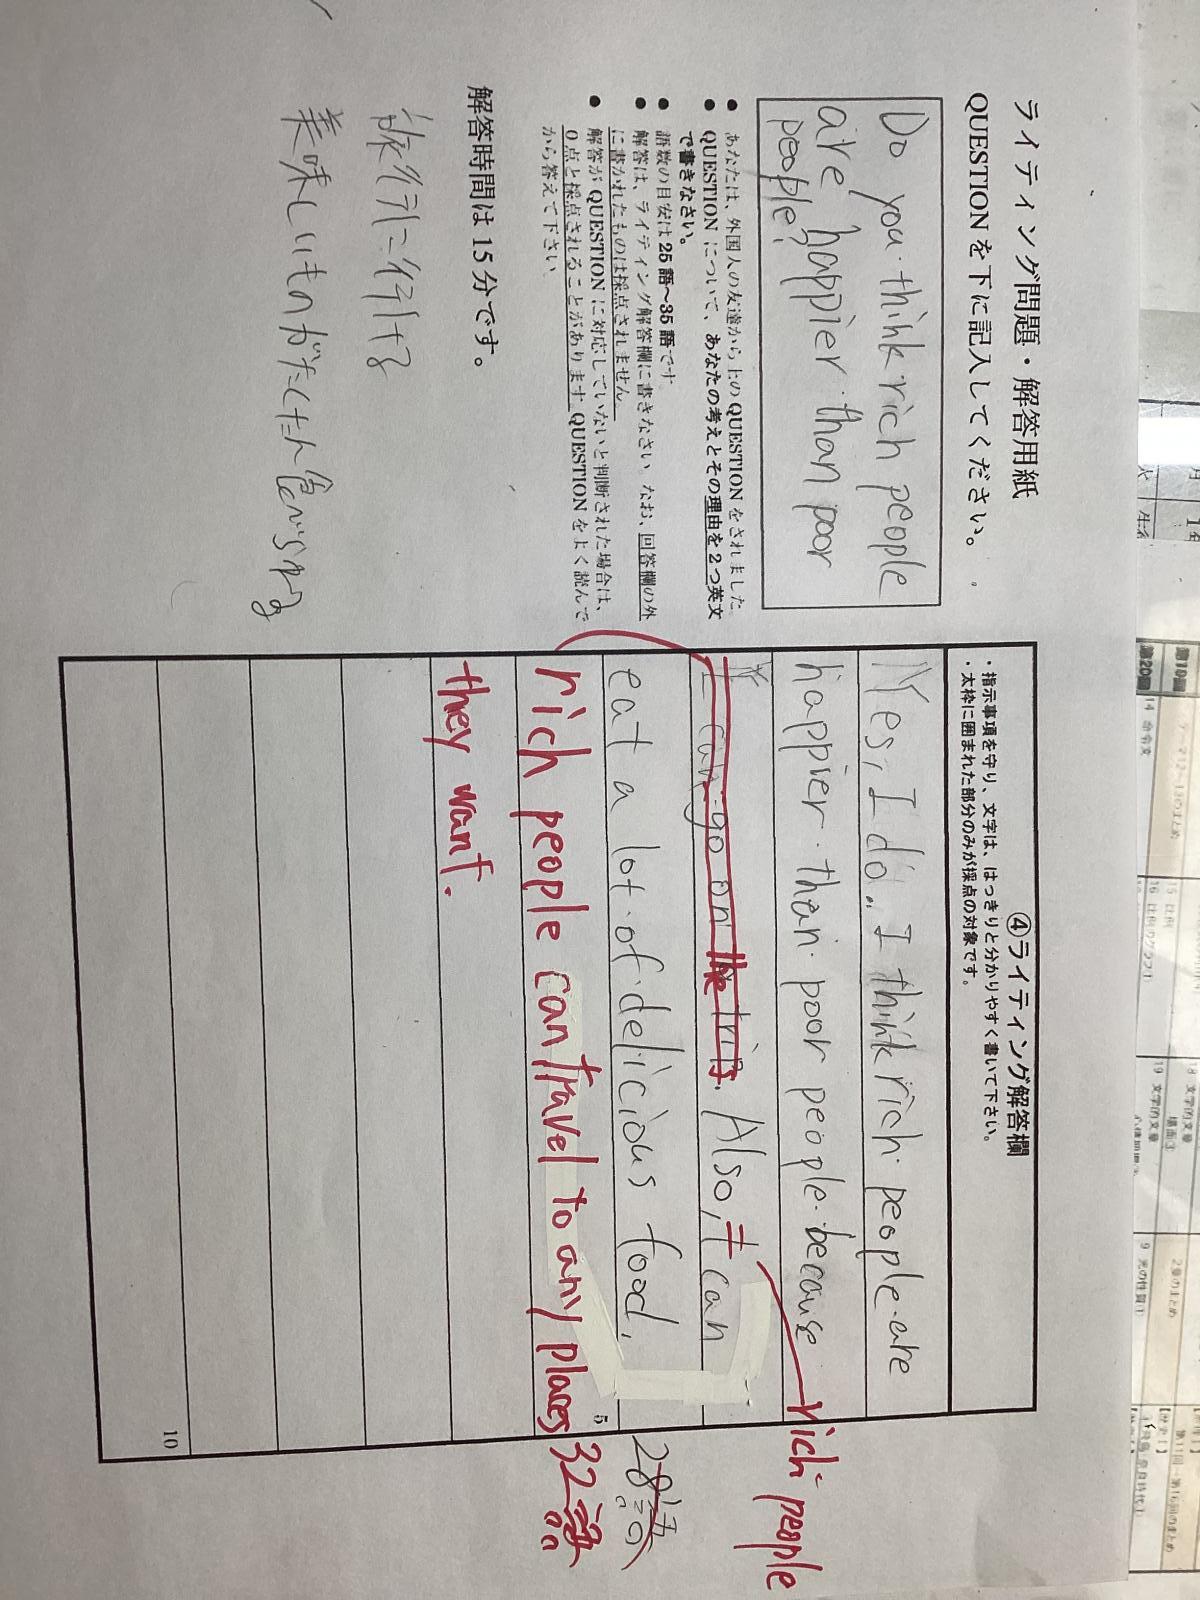 ライティング問題・解答用紙
QUESTION を下に記入してください。
Do you think rich people
are happier than poor
people?
● あなたは、外国人の友達から上の QUESTION をされました
● QUESTION について、あなたの考えとその理由を2つ英文
で書きなさい。
● 語数の目安は 25 語～35 語です
● 解答は、ライティング解答欄に書きなさい なお、回答欄の外
に書かれたものは採点されません
● 解答が QUESTION に対応していないと判断された場合は、
0点と採点されることがあります QUESTION をよく読んで
から答えて下さい
解答時間は 15 分です。
旅行に行ける
美味しいものがたくさん食べられる
④ライティング解答欄
・指示事項を守り、文字は、はっきりと分かりやすく書いて下さい。
・太枠に囲まれた部分のみが採点の対象です。
Yes, I do. I think rich people are
happier than poor people because
I can go on the trip. Also, I can
rich people
eat a lot of delicious food.
28語
5
rich people can travel to any places
32語
they want.
10
第19回
第20回
テーマ12～18のまとめ
14 命令文
15 比例
16 比例のグラフ①
18 文学的文章
場面③
19 文学的文章
2章のまとめ
9 光の性質①
第11回～第16回のまとめ
【歴史1】
奈良時代①